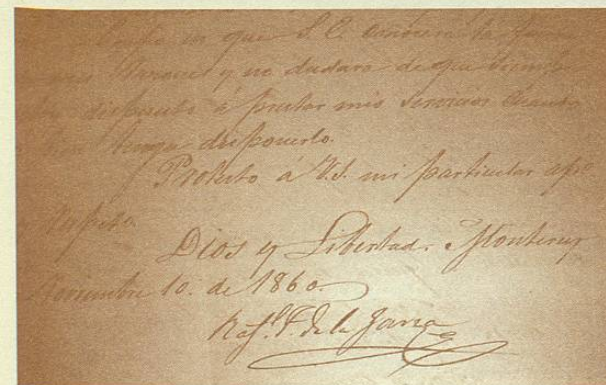 en que S. E. conocera la
mis y no dudara de que siempre
dispuesto á prestar mis servicios cuando
tenga disponerlo.
Protesto á V.S. mi particular
respeto.
Dios y Libertad. Monterey
Noviembre 10. de 1860.
Raf.l F. de la Garza